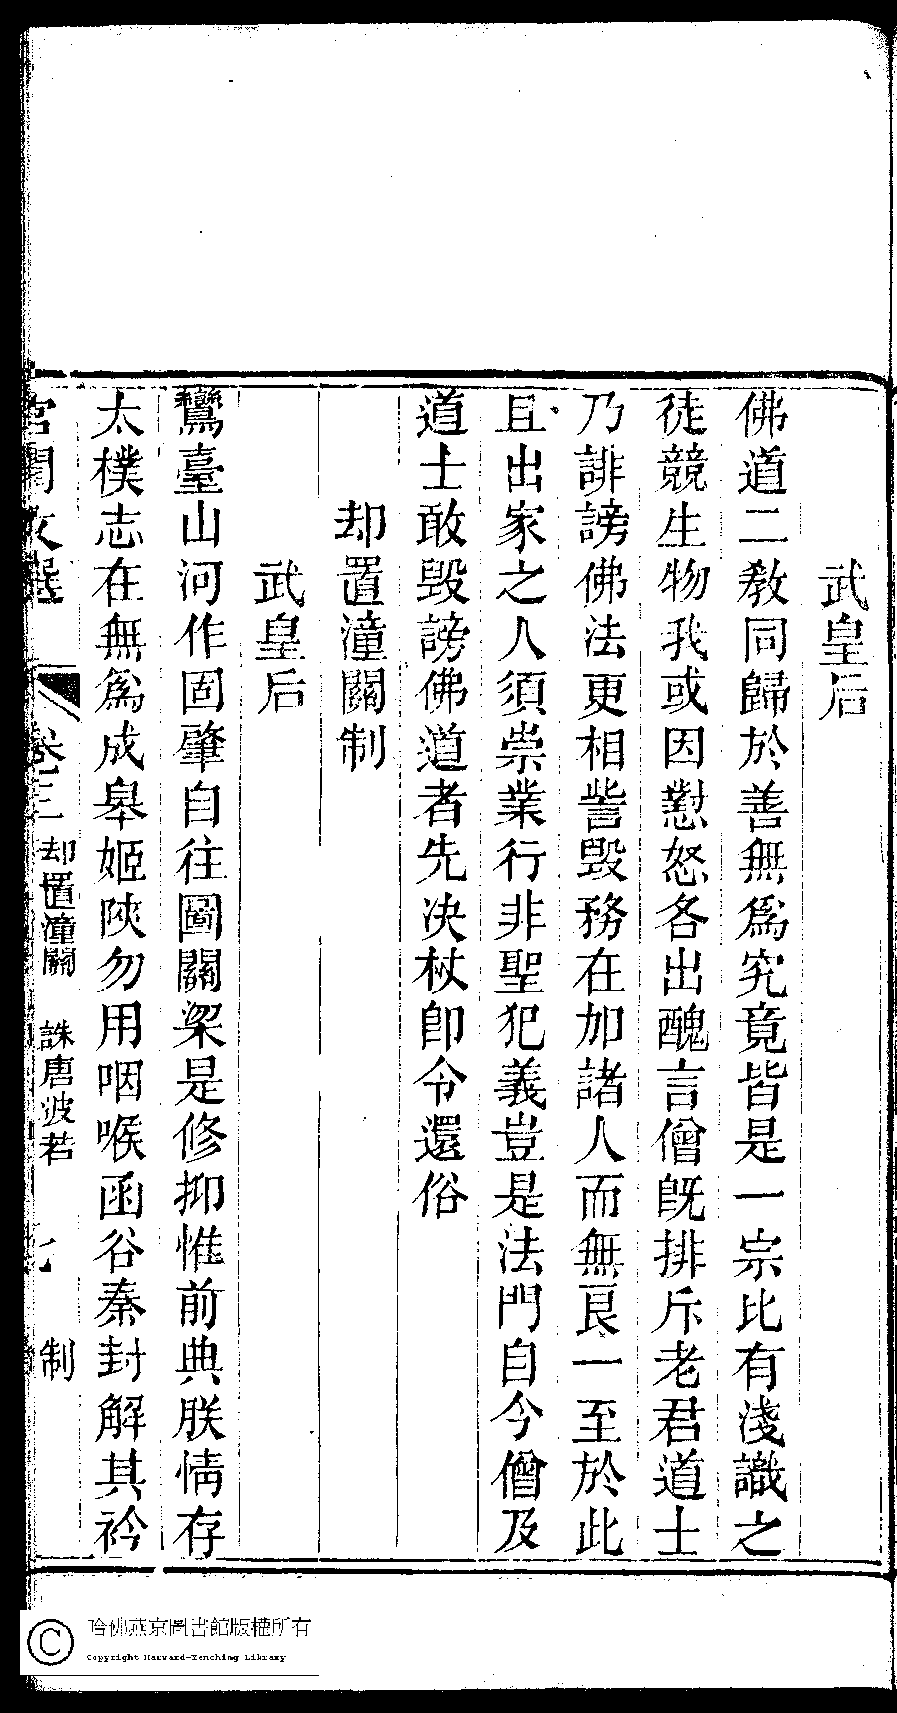 武皇后
佛道二教同歸於善無爲究竟皆是一宗比有淺識之
徒競生物我或因懟怒各出醜言僧旣排斥老君道士
乃誹謗佛法更相訾毀務在加諸人而無良一至於此
且出家之人須崇業行非聖犯義豈是法門自今僧及
道士敢毀謗佛道者先決杖卽令還俗
却置潼關制
武皇后
鸞臺山河作固肇自往圖關梁是修抑惟前典朕情存
太樸志在無爲成皋姬陝勿用咽喉函谷秦封解其衿
宮閨文選 卷三 却置潼關 誅唐波若 七 制
哈佛燕京圖書館版權所有
Copyright Harvard-Yenching Library